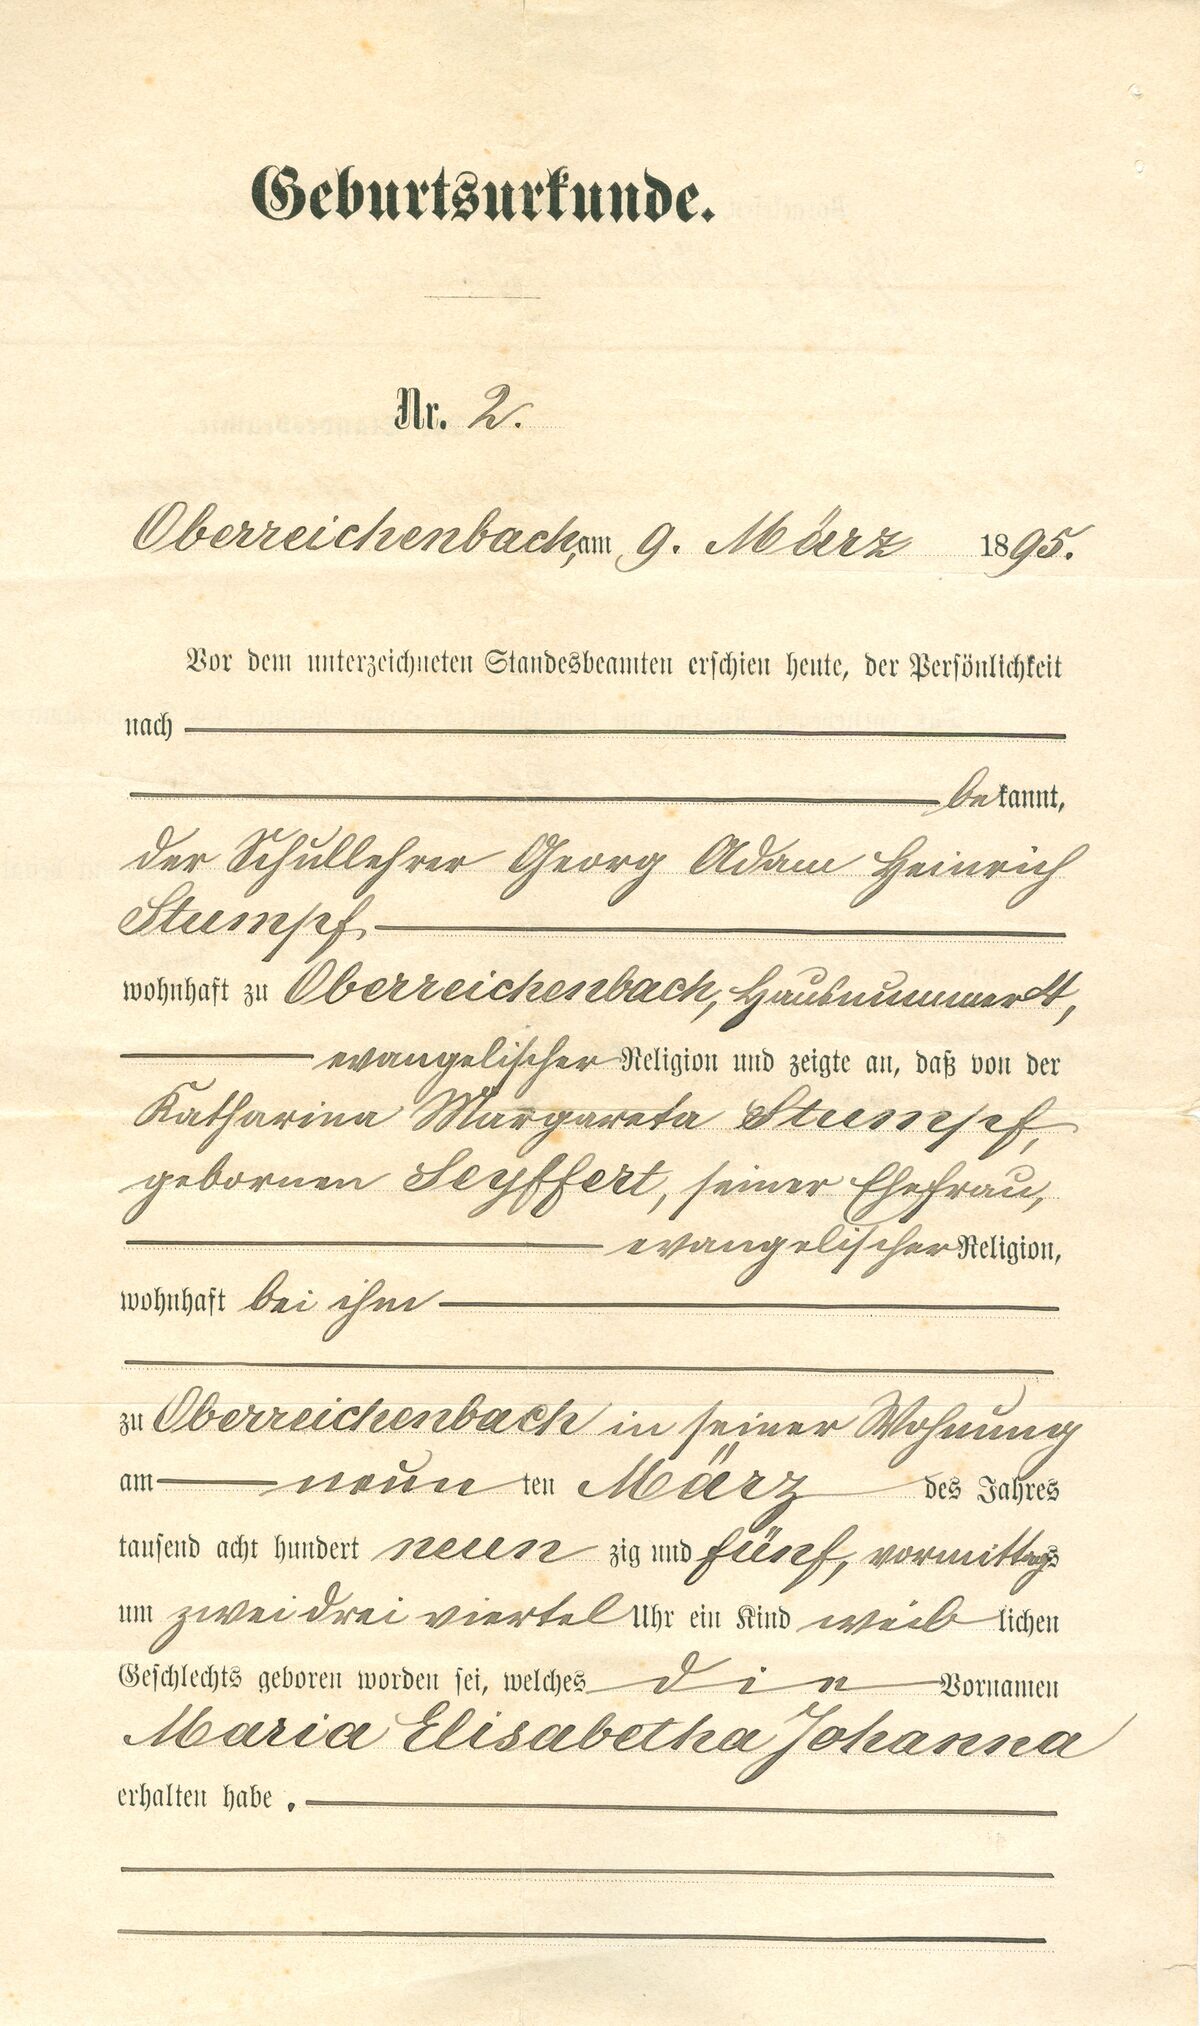 Geburtsurkunde.
Nr. 2.
Oberreichenbach, am 9. März 1895.
Vor dem unterzeichneten Standesbeamten erschien heute, der Persönlichkeit
nach
bekannt,
der Schullehrer Georg Adam Heinrich
Stumpf
wohnhaft zu Oberreichenbach, Hausnummer 4,
evangelischer Religion und zeigte an, daß von der
Katharina Margareta Stumpf,
gebornen Seyffert, seiner Ehefrau,
evangelischer Religion,
wohnhaft bei ihm
zu Oberreichenbach in seiner Wohnung
am neun ten März des Jahres
tausend acht hundert neun zig und fünf, vormittags
um zwei drei viertel Uhr ein Kind weib lichen
Geschlechts geboren worden sei, welches die Vornamen
Maria Elisabetha Johanna
erhalten habe.